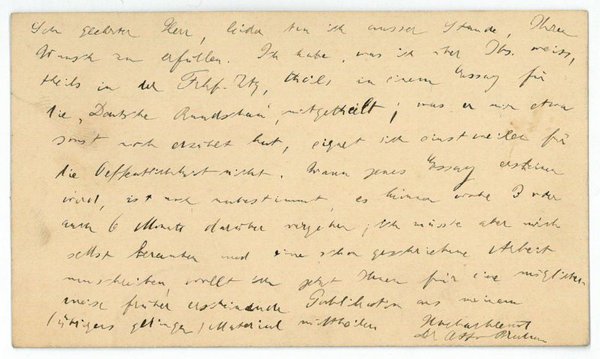 Sehr geehrter Herr, leider bin ich ausser Stande, Ihren
Wunsch zu erfüllen. Ich habe, was ich über Ibs. weiss,
theils in der Frkf. Ztg, theils in einem Essay für
die „Deutsche Rundschau" mitgetheilt; was er mir etwa
sonst noch erzählt hat, eignet sich einstweilen für
die Oeffentlichkeit nicht. Wann jenes Essay erscheinen
wird, ist noch unbestimmt, es können wohl 3 oder
auch 6 Monate darüber vergehen; ich müsste aber mich
selbst berauben und eine schon geschriebene Arbeit
umschreiben, wollt ich jetzt Ihnen für eine möglicher
weise früher erscheinende Publikation aus meinem
(übrigens geringen) Material mittheilen
Hochachtend
Dr Otto Brahm